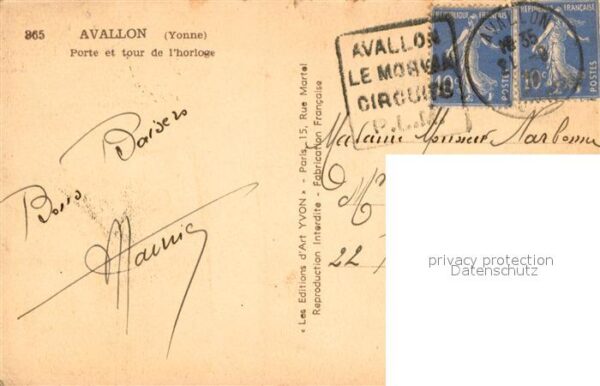 865 AVALLON (Yonne)
Porte et tour de l'horloge
Bons Baisers
« Les Editions d'Art YVON » - Paris, 15, Rue Martel
Reproduction Interdite - Fabrication Française
AVALLON
LE MORVAN
CIRCUITS
P.L.M.
REPUBLIQUE FRANÇAISE
10c
POSTES
AVALLON
10c
POSTES
Madame Monsieur Narbonne
22
privacy protection
Datenschutz